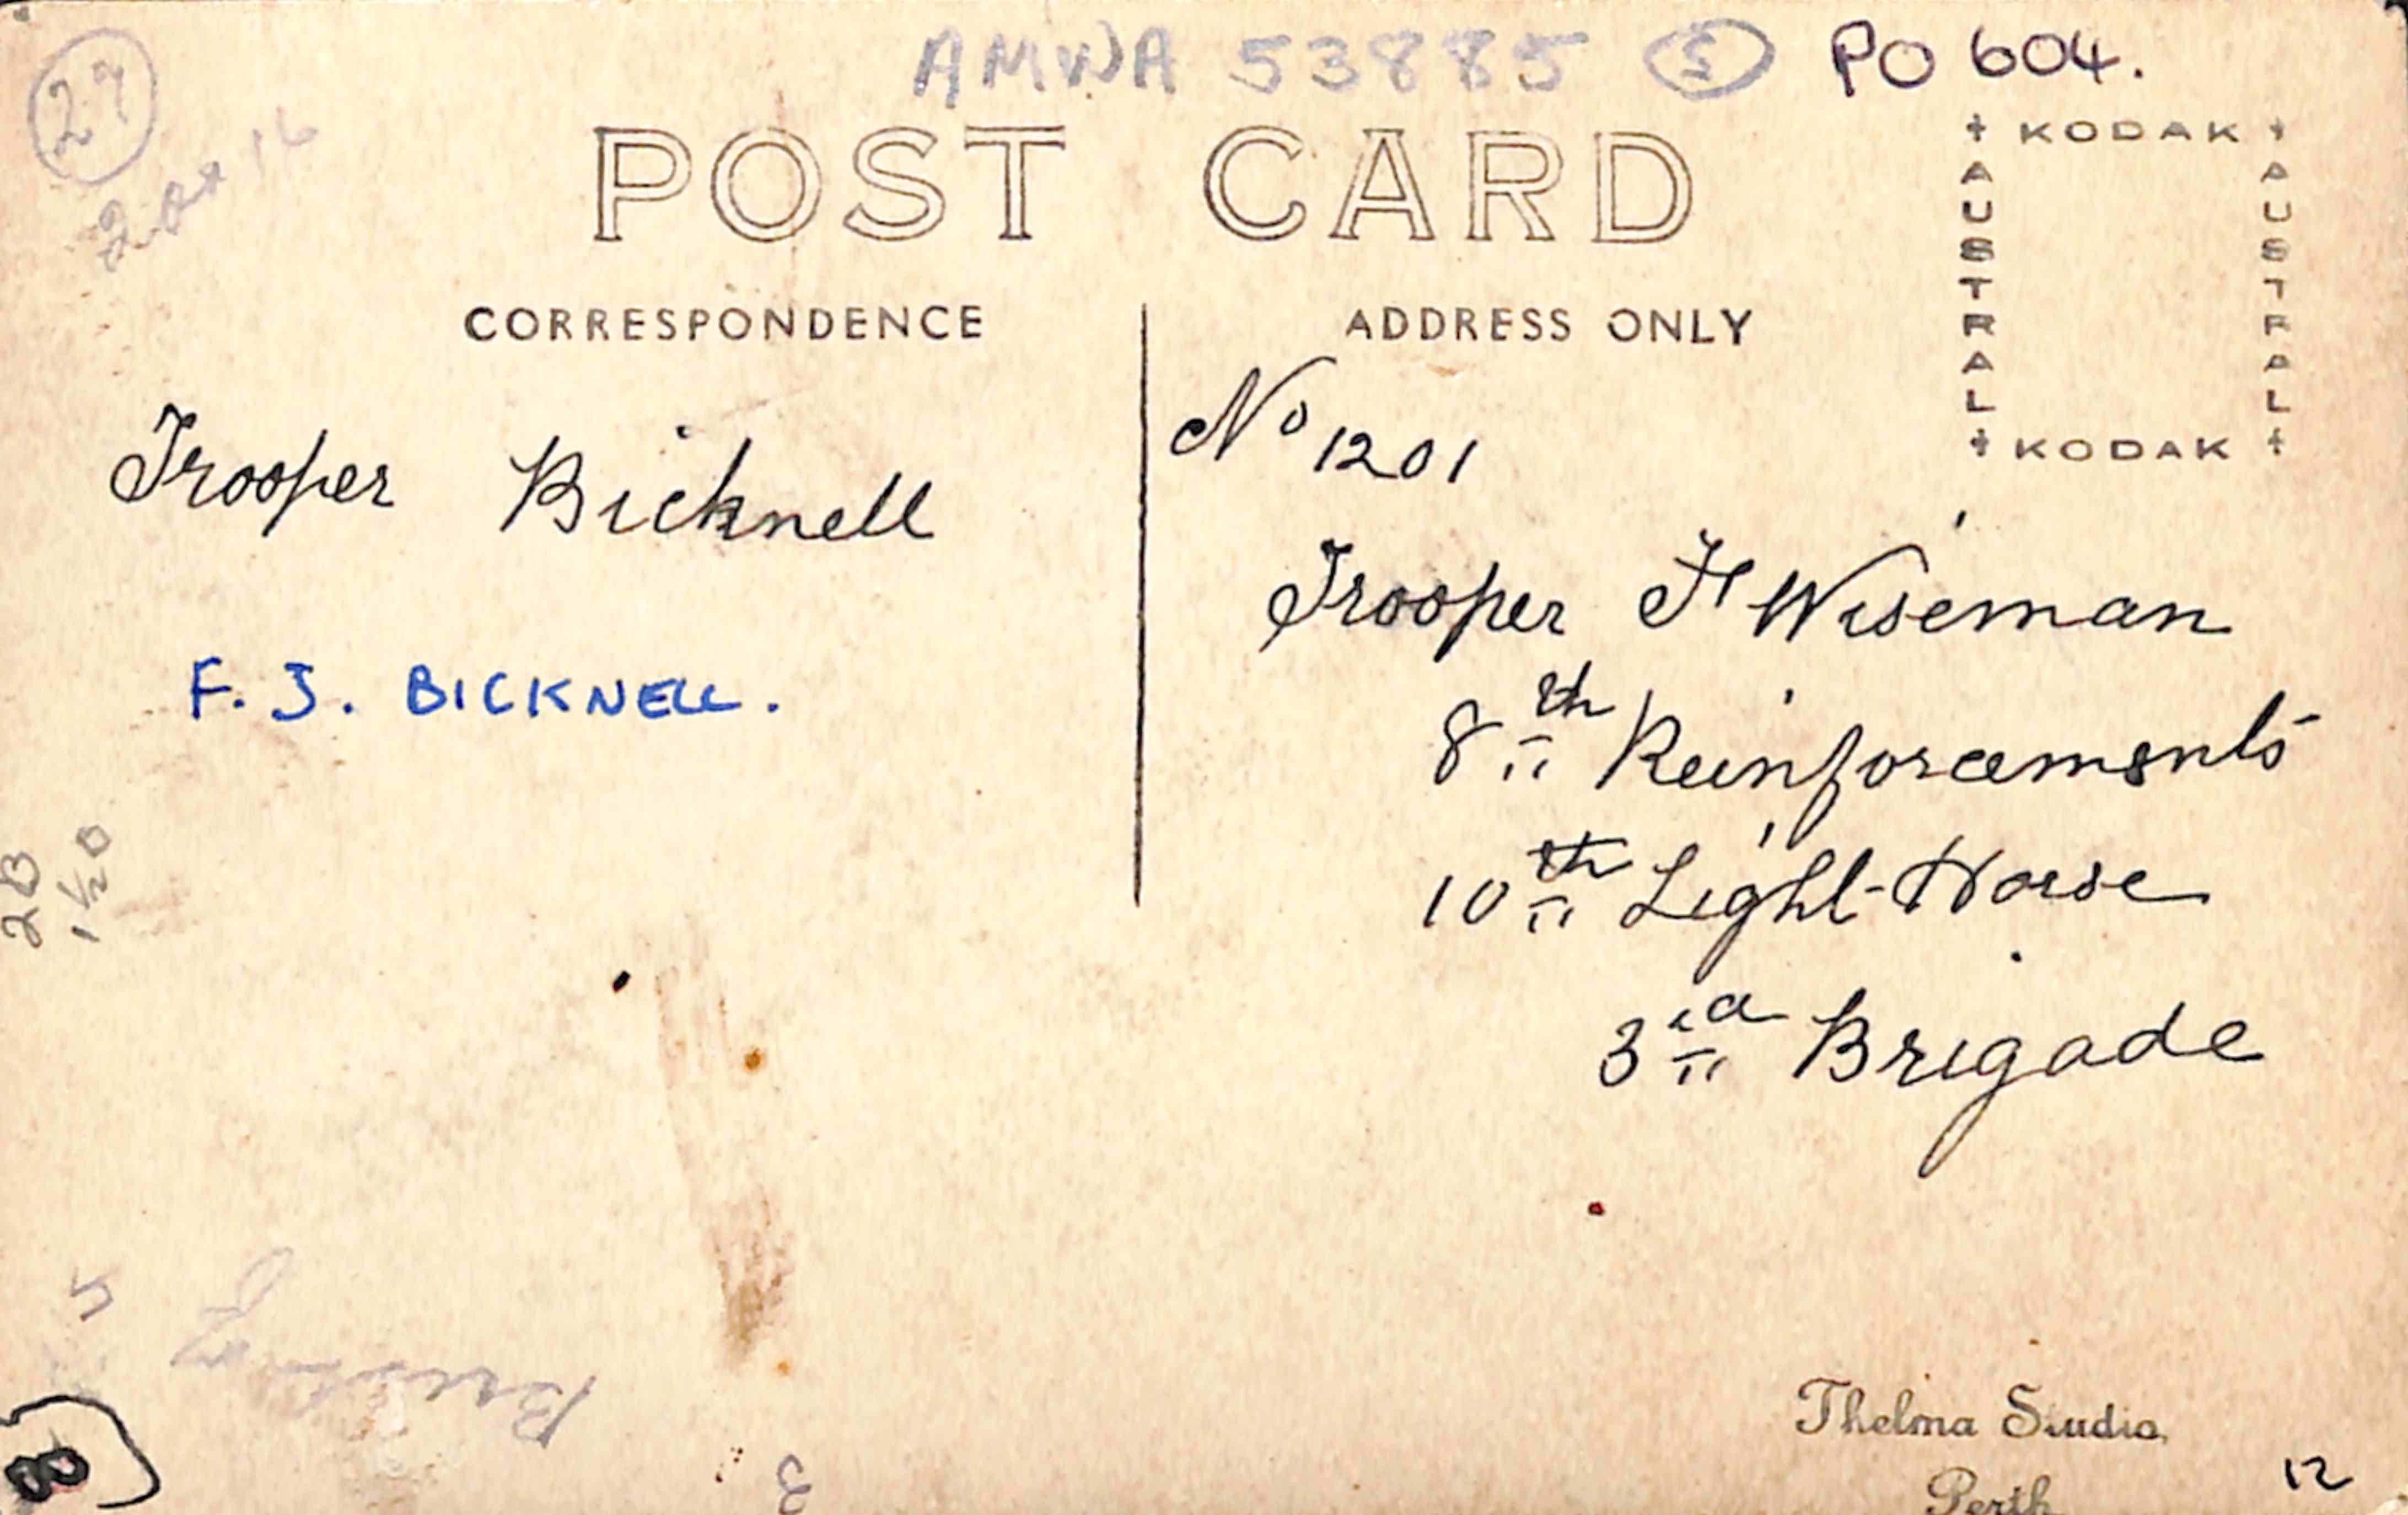 27
AMWA 53885 5 PO 604.
POST CARD
KODAK
AUSTRAL
AUSTRAL
KODAK
CORRESPONDENCE
ADDRESS ONLY
Trooper Bicknell
F. J. BICKNELL.
No 1201
Trooper F Wiseman
8th Reinforcements
10th Light Horse
3rd Brigade
2B
1 1/20
8
3
Thelma Studio
Perth
12